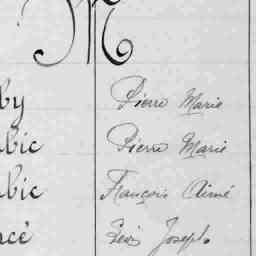 M
by Pierre Marie
bic Pierre Marie
bic François Aimé
cé Joseph